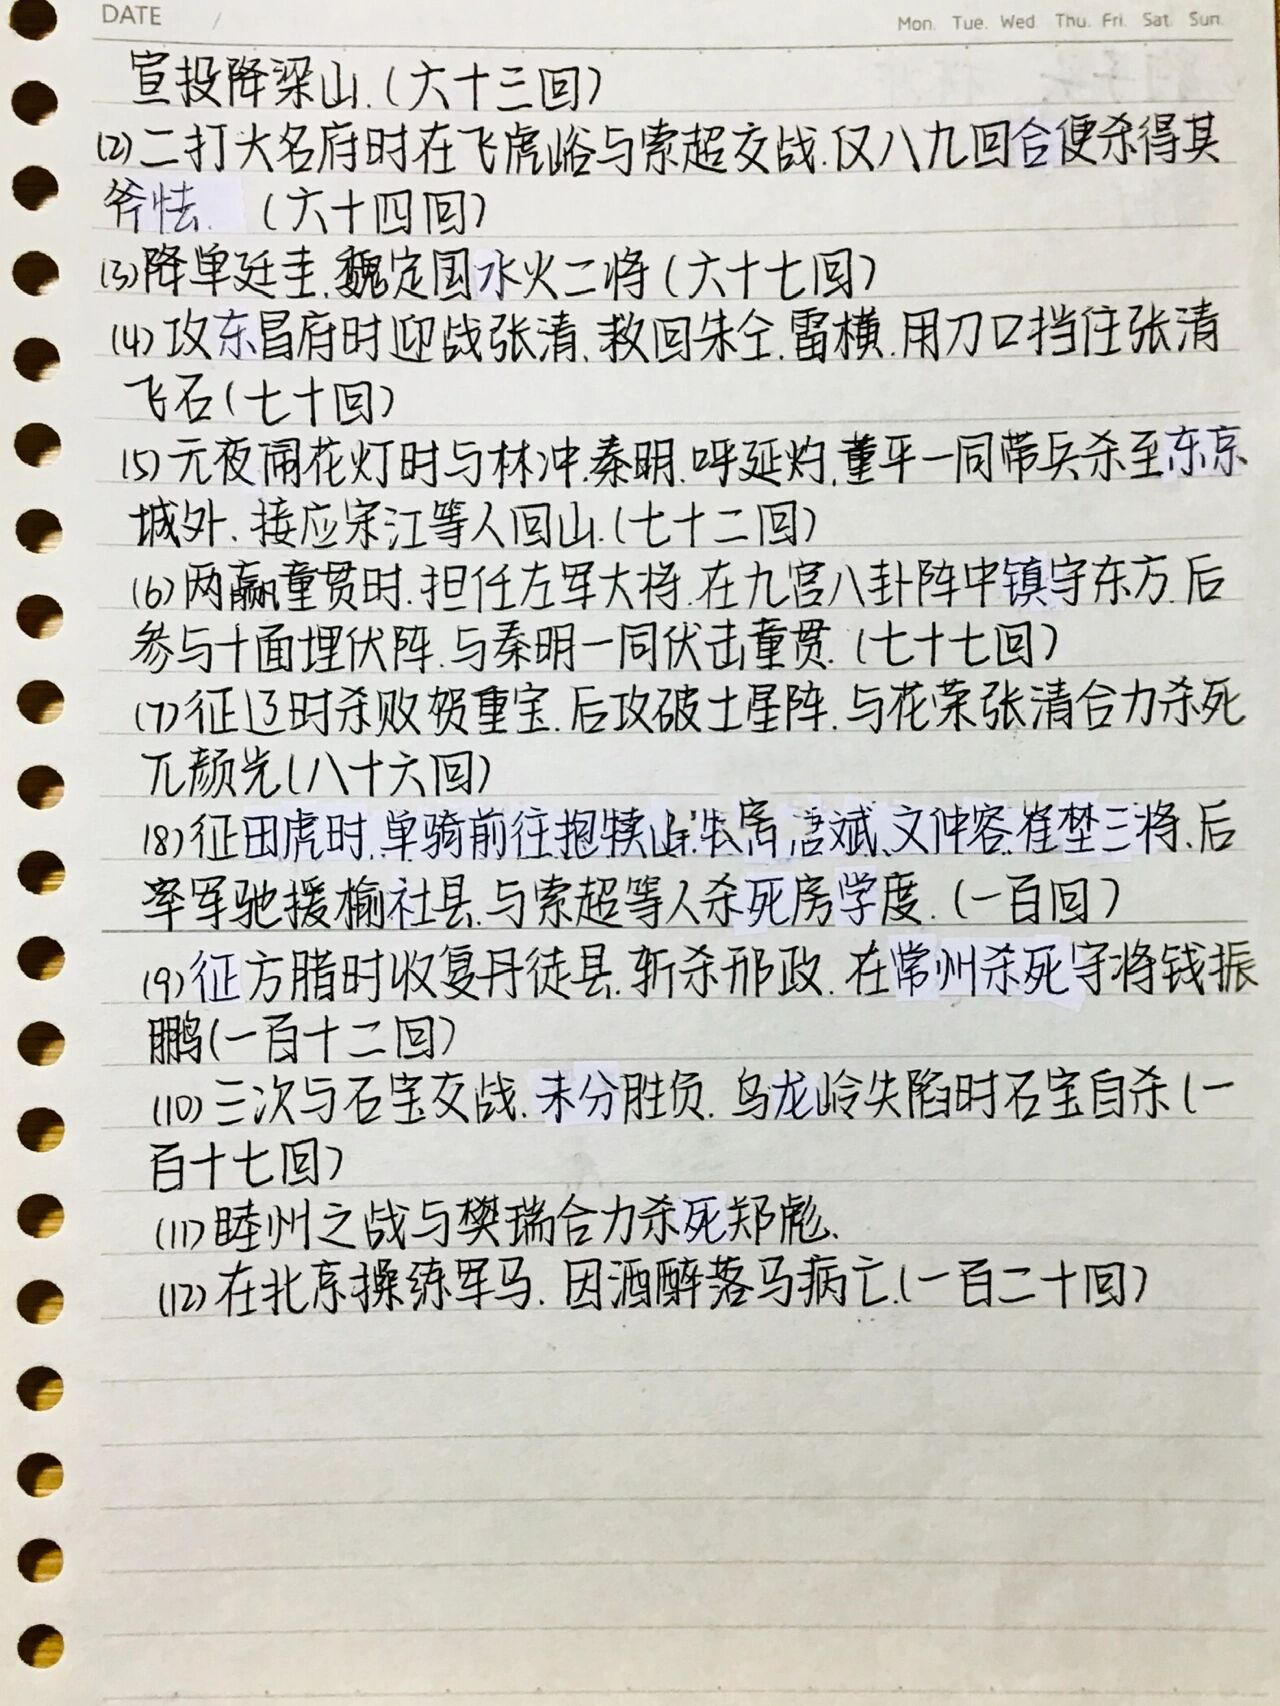 DATE / Mon. Tue. Wed. Thu. Fri. Sat. Sun.
宣投降梁山.(六十三回)
(2)二打大名府时在飞虎峪与索超交战.仅八九回合便杀得其
斧怯. (六十四回)
(3)降单廷圭.魏定国水火二将(六十七回)
(4)攻东昌府时迎战张清、救回朱仝.雷横.用刀口挡住张清
飞石(七十回)
(5)元夜闹花灯时与林冲.秦明.呼延灼.董平一同带兵杀至东京
城外、接应宋江等人回山.(七十二回)
(6)两赢童贯时.担任左军大将.在九宫八卦阵中镇守东方.后
参与十面埋伏阵.与秦明一同伏击童贯.(七十七回)
(7)征辽时杀败贺重宝.后攻破土星阵.与花荣张清合力杀死
兀颜光(八十六回)
(8)征田虎时.单骑前往抱犊山.斌、文仲容.崔埜三将、后
率军驰援榆社县.与索超等人杀死房学度.(一百回)
(9)征方腊时收复丹徒县.斩杀邢政.在常州杀死守将钱振
鹏(一百十二回)
(10)三次与石宝交战.未分胜负.乌龙岭失陷时石宝自杀(一
百十七回)
(11)睦州之战与樊瑞合力杀死郑彪.
(12)在北京操练军马.因酒醉落马病亡.(一百二十回)